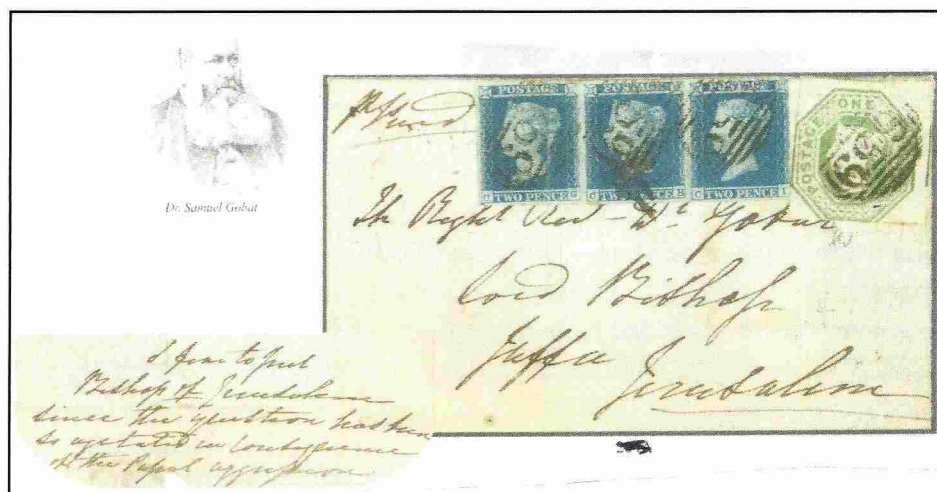 Dr. Samuel Gobat
pr Paid
POSTAGE POSTAGE POSTAGE
TWO PENCE TWO PENCE TWO PENCE
POSTAGE ONE
The Right Rev - Dr Gobat
Lord Bishop
Jaffa
Jerusalem
I fear to put
Bishop of Jerusalem
since the question has been
so agitated in consequence
of the Papal aggression